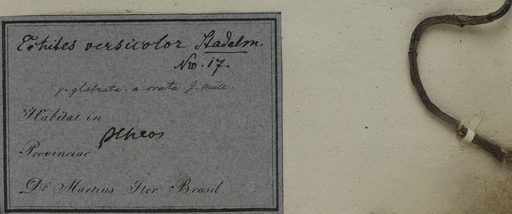 Echites versicolor Stadelm.
No. 17.
β. glabrata. a ovata J. Mall.
Habitat in
Ilheos
Provinciae
Dr. Martius Iter Brasil